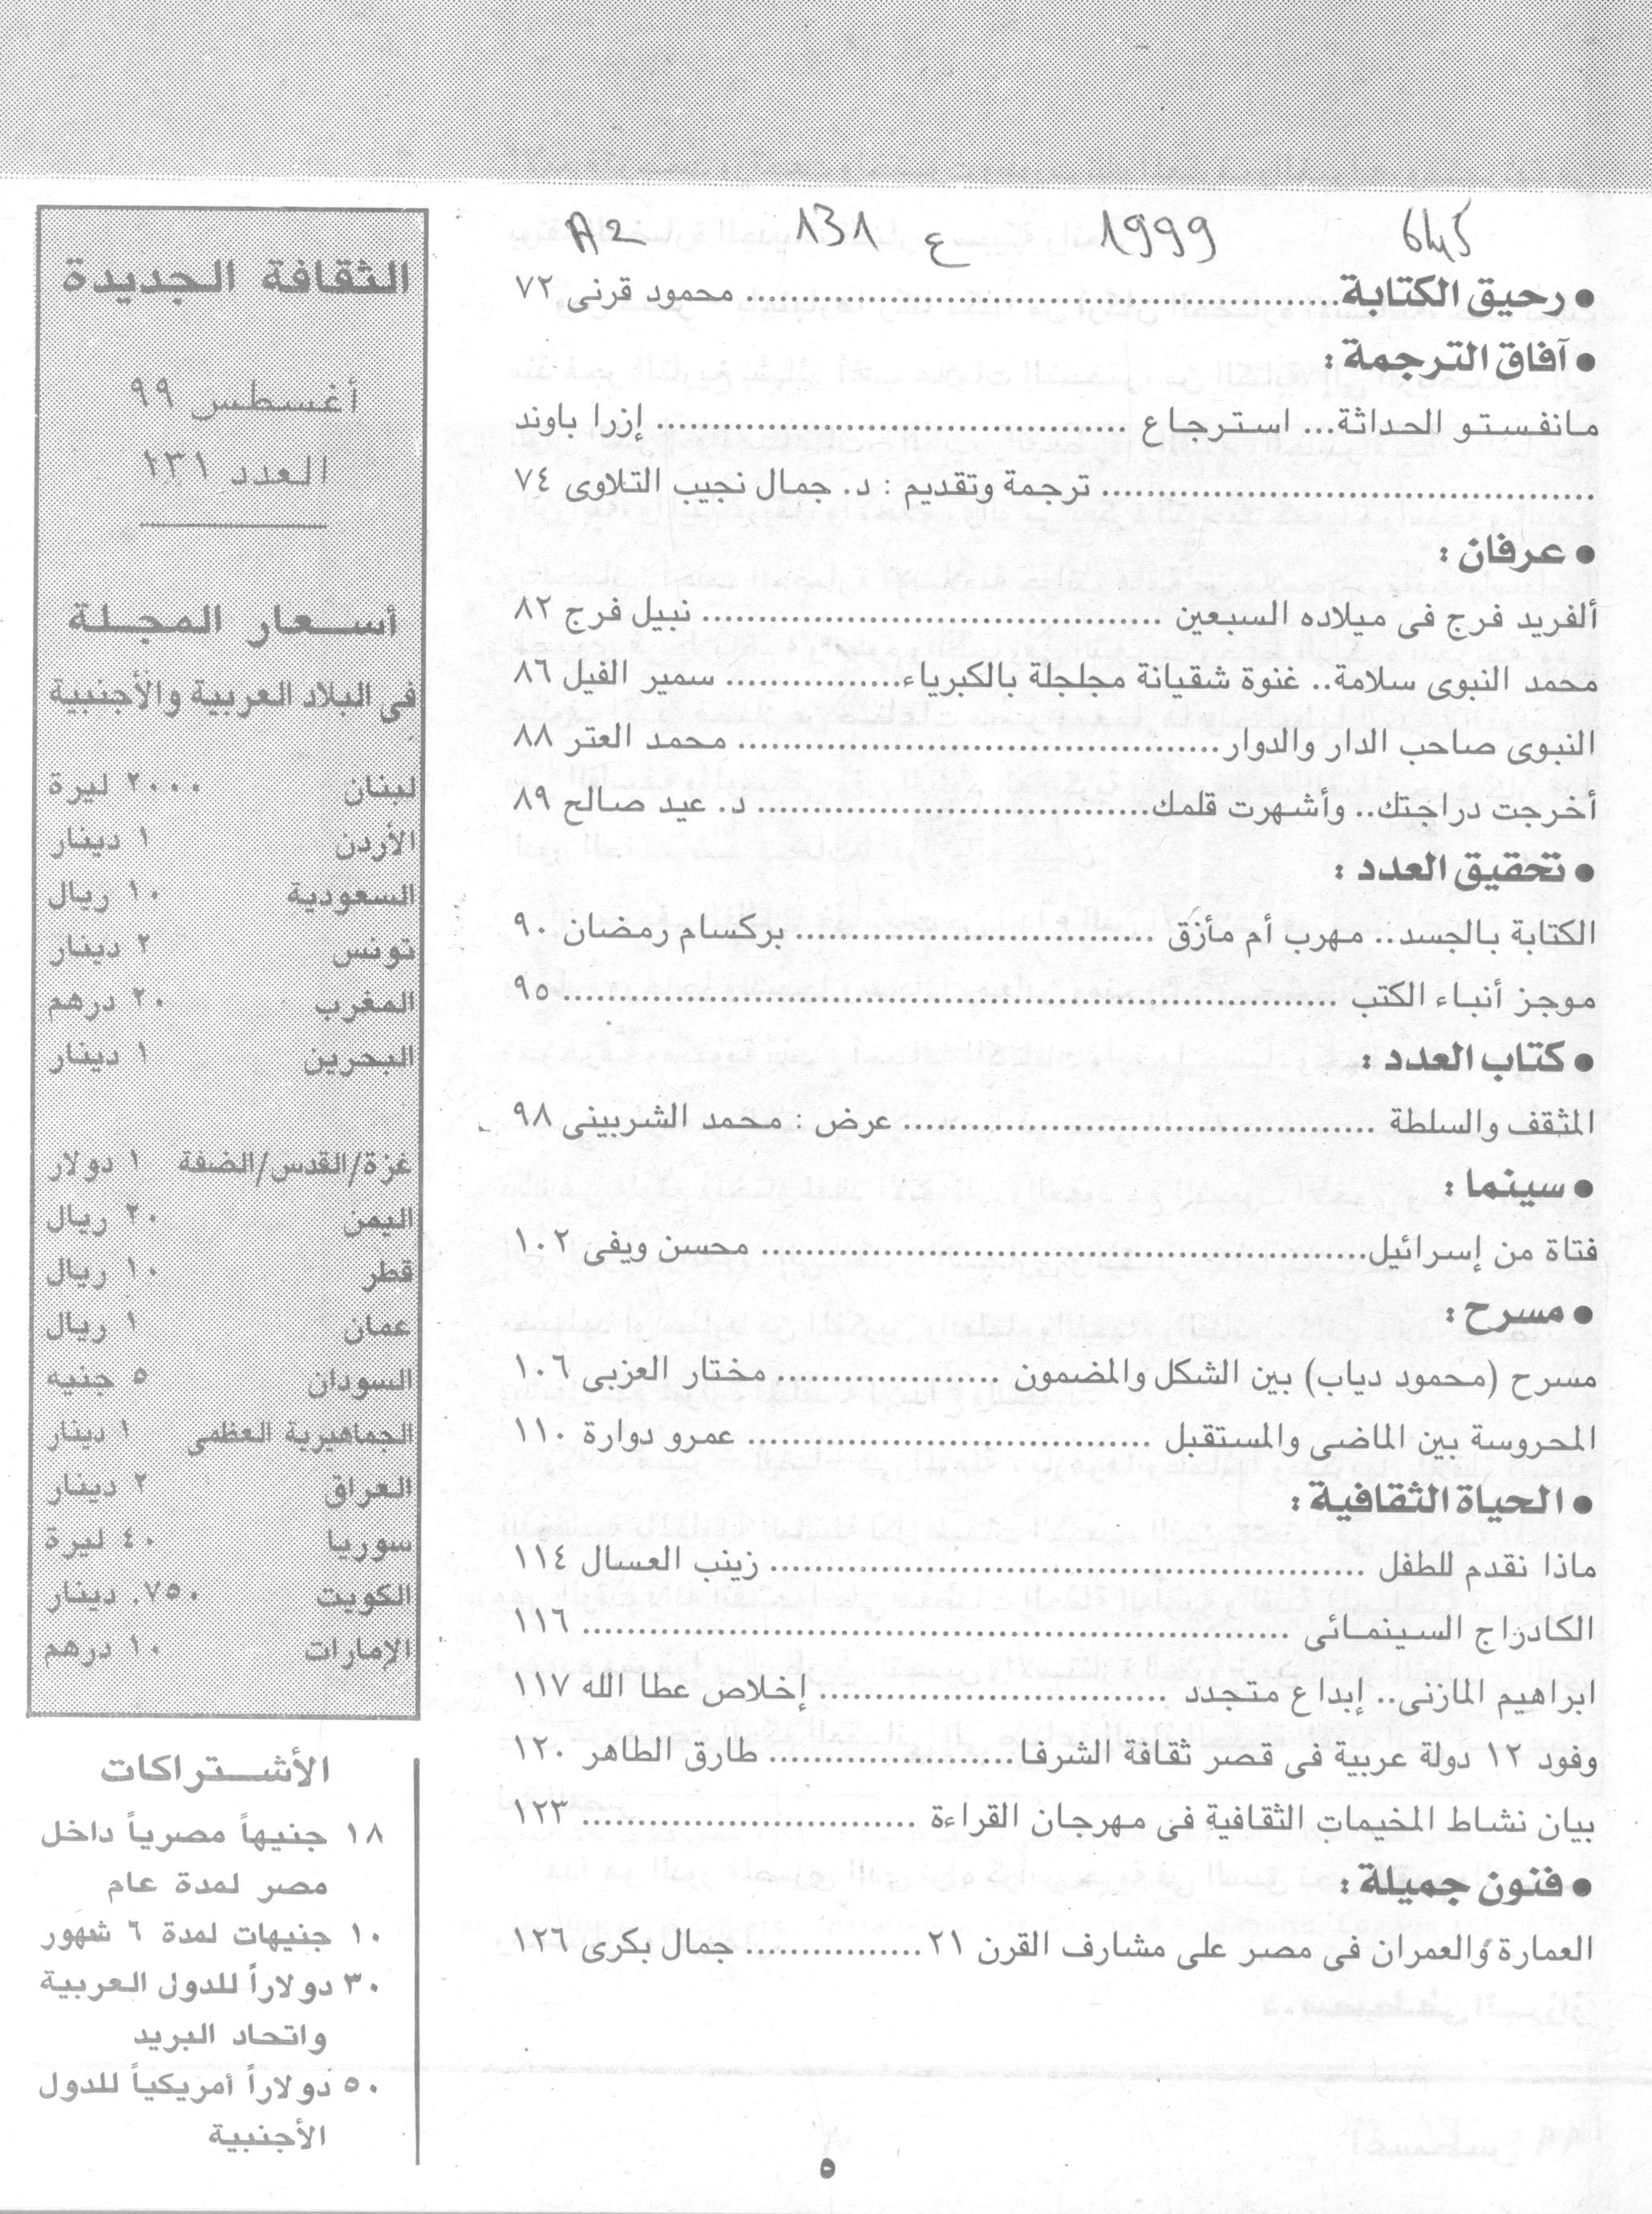 1999 ع 131 A2
• رحيق الكتابة ........ محمود قرنى ٧٢
• آفاق الترجمة :
مانفستو الحداثة... استرجاع ........ إزرا باوند
........ ترجمة وتقديم : د. جمال نجيب التلاوى ٧٤
• عرفان :
ألفريد فرج فى ميلاده السبعين ........ نبيل فرج ٨٢
محمد النبوى سلامة.. غنوة شقيانة مجلجلة بالكبرياء ........ سمير الفيل ٨٦
النبوى صاحب الدار والدوار ........ محمد العتر ٨٨
أخرجت دراجتك.. وأشهرت قلمك ........ د. عيد صالح ٨٩
• تحقيق العدد :
الكتابة بالجسد.. مهرب أم مأزق ........ بركسام رمضان ٩٠
موجز أنباء الكتب ........ ٩٥
• كتاب العدد :
المثقف والسلطة ........ عرض : محمد الشربينى ٩٨
• سينما :
فتاة من إسرائيل ........ محسن ويفى ١٠٢
• مسرح :
مسرح (محمود دياب) بين الشكل والمضمون ........ مختار العزبى ١٠٦
المحروسة بين الماضى والمستقبل ........ عمرو دوارة ١١٠
• الحياة الثقافية :
ماذا نقدم للطفل ........ زينب العسال ١١٤
الكادراج السينمائى ........ ١١٦
ابراهيم المازنى.. إبداع متجدد ........ إخلاص عطا الله ١١٧
وفود ١٢ دولة عربية فى قصر ثقافة الشرفا ........ طارق الطاهر ١٢٠
بيان نشاط المخيمات الثقافية فى مهرجان القراءة ........ ١٢٣
• فنون جميلة :
العمارة والعمران فى مصر على مشارف القرن ٢١ ........ جمال بكرى ١٢٦
الثقافة الجديدة
أغسطس ٩٩
العدد ١٣١
أسعار المجلة
فى البلاد العربية والأجنبية
لبنان ٢٠٠٠ ليرة
الأردن ١ دينار
السعودية ١٠ ريال
تونس ٢ دينار
المغرب ٢٠ درهم
البحرين ١ دينار
غزة/القدس/الضفة ١ دولار
اليمن ٢٠ ريال
قطر ١٠ ريال
عمان ١ ريال
السودان ٥ جنيه
الجماهيرية العظمى ١ دينار
العراق ٢ دينار
سوريا ٤٠ ليرة
الكويت ٧٥٠. دينار
الإمارات ١٠ درهم
الأشتراكات
١٨ جنيهاً مصرياً داخل
مصر لمدة عام
١٠ جنيهات لمدة ٦ شهور
٣٠ دولاراً للدول العربية
واتحاد البريد
٥٠ دولاراً أمريكياً للدول
الأجنبية
٥